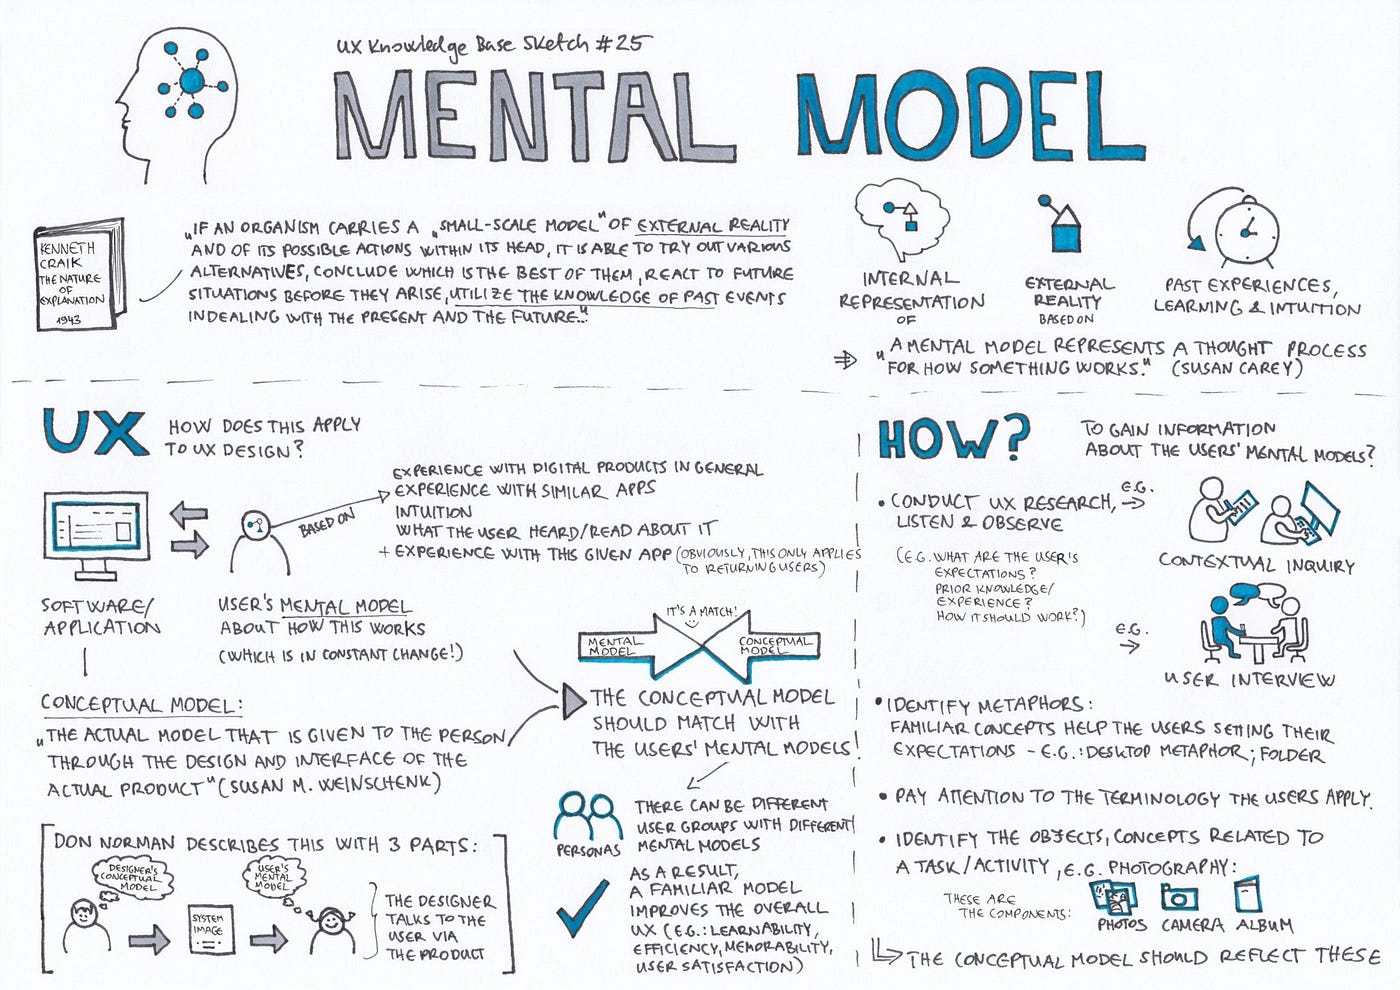 UX Knowledge Base Sketch #25
MENTAL MODEL
KENNETH
CRAIK
THE NATURE
OF
EXPLANATION
1943
„IF AN ORGANISM CARRIES A „SMALL-SCALE MODEL" OF EXTERNAL REALITY
AND OF ITS POSSIBLE ACTIONS WITHIN ITS HEAD, IT IS ABLE TO TRY OUT VARIOUS
ALTERNATIVES, CONCLUDE WHICH IS THE BEST OF THEM, REACT TO FUTURE
SITUATIONS BEFORE THEY ARISE, UTILIZE THE KNOWLEDGE OF PAST EVENTS
IN DEALING WITH THE PRESENT AND THE FUTURE."
INTERNAL
REPRESENTATION
OF
EXTERNAL
REALITY
BASED ON
PAST EXPERIENCES,
LEARNING & INTUITION
„A MENTAL MODEL REPRESENTS A THOUGHT PROCESS
FOR HOW SOMETHING WORKS." (SUSAN CAREY)
UX
HOW DOES THIS APPLY
TO UX DESIGN?
BASED ON
EXPERIENCE WITH DIGITAL PRODUCTS IN GENERAL
EXPERIENCE WITH SIMILAR APPS
INTUITION
WHAT THE USER HEARD/READ ABOUT IT
+ EXPERIENCE WITH THIS GIVEN APP (OBVIOUSLY, THIS ONLY APPLIES
TO RETURNING USERS)
SOFTWARE/
APPLICATION
USER'S MENTAL MODEL
ABOUT HOW THIS WORKS
(WHICH IS IN CONSTANT CHANGE!)
CONCEPTUAL MODEL:
„THE ACTUAL MODEL THAT IS GIVEN TO THE PERSON
THROUGH THE DESIGN AND INTERFACE OF THE
ACTUAL PRODUCT" (SUSAN M. WEINSCHENK)
IT'S A MATCH!
MENTAL
MODEL
CONCEPTUAL
MODEL
THE CONCEPTUAL MODEL
SHOULD MATCH WITH
THE USERS' MENTAL MODELS!
PERSONAS
THERE CAN BE DIFFERENT
USER GROUPS WITH DIFFERENT
MENTAL MODELS
AS A RESULT,
A FAMILIAR MODEL
IMPROVES THE OVERALL
UX (E.G.: LEARNABILITY,
EFFICIENCY, MEMORABILITY,
USER SATISFACTION)
DON NORMAN DESCRIBES THIS WITH 3 PARTS:
DESIGNER'S
CONCEPTUAL
MODEL
SYSTEM
IMAGE
USER'S
MENTAL
MODEL
THE DESIGNER
TALKS TO THE
USER VIA
THE PRODUCT
HOW?
TO GAIN INFORMATION
ABOUT THE USERS' MENTAL MODELS?
• CONDUCT UX RESEARCH,
LISTEN & OBSERVE
E.G.
CONTEXTUAL INQUIRY
(E.G. WHAT ARE THE USER'S
EXPECTATIONS?
PRIOR KNOWLEDGE/
EXPERIENCE?
HOW IT SHOULD WORK?)
E.G.
USER INTERVIEW
• IDENTIFY METAPHORS:
FAMILIAR CONCEPTS HELP THE USERS SETTING THEIR
EXPECTATIONS - E.G.: DESKTOP METAPHOR; FOLDER
• PAY ATTENTION TO THE TERMINOLOGY THE USERS APPLY.
• IDENTIFY THE OBJECTS, CONCEPTS RELATED TO
A TASK/ACTIVITY, E.G. PHOTOGRAPHY:
THESE ARE
THE COMPONENTS:
PHOTOS CAMERA ALBUM
THE CONCEPTUAL MODEL SHOULD REFLECT THESE